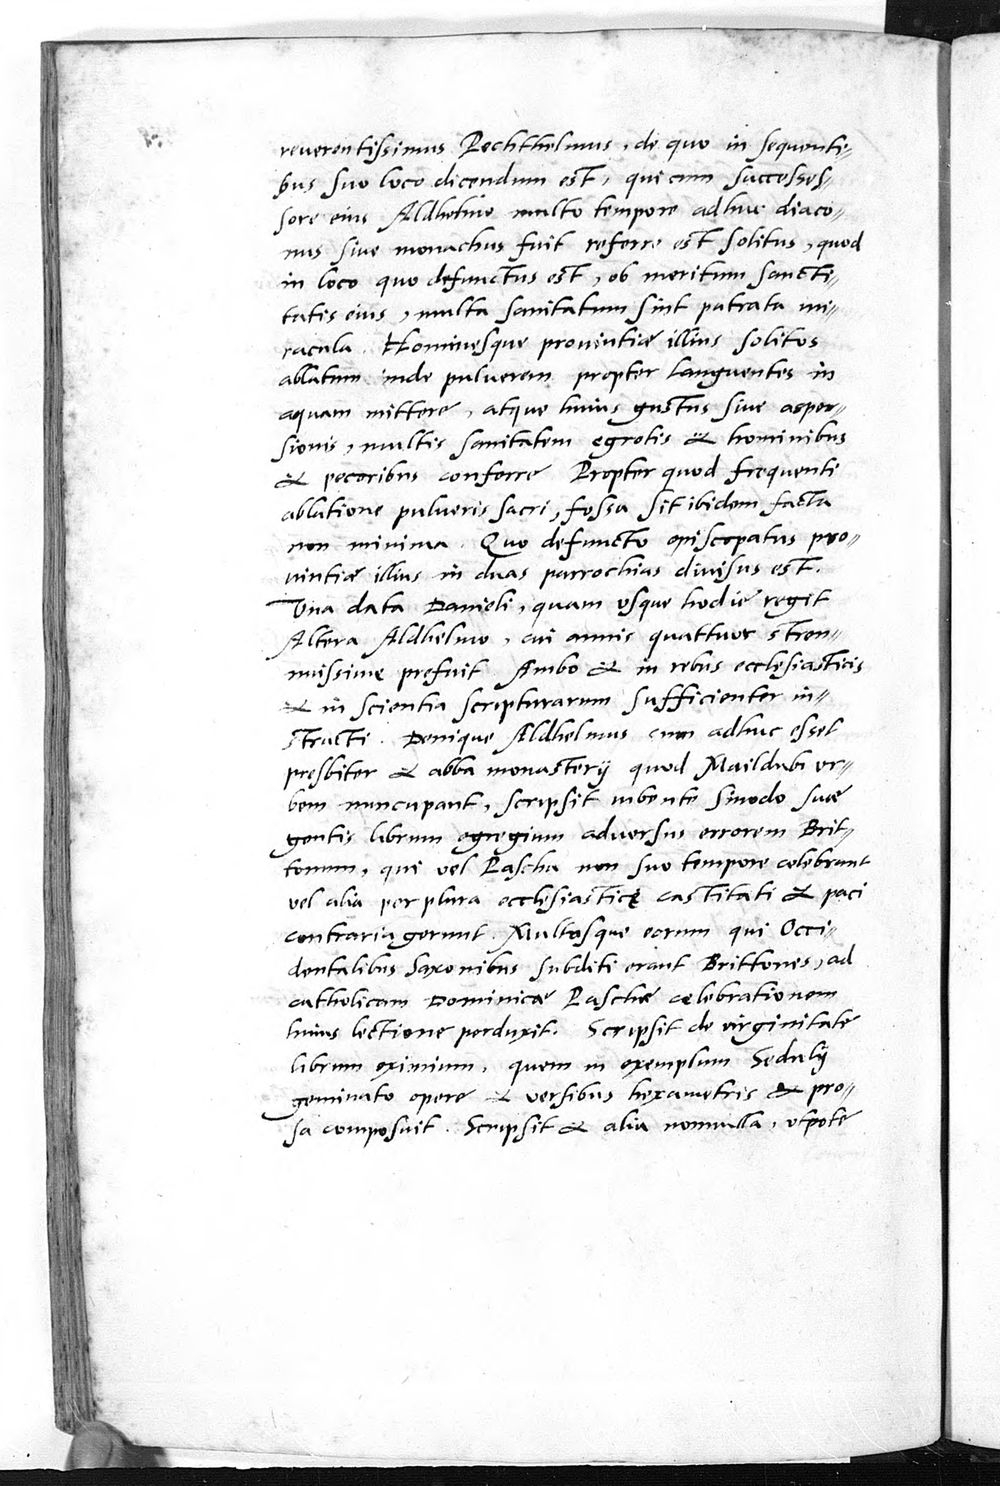 reuerentissimus Pechthelmus, de quo in sequenti-
bus suo loco dicendum est, qui cum successes-
sore eius Aldhelmo multo tempore adhuc diaco-
nus siue monachus fuit referre est solitus, quod
in loco quo defunctus est, ob meritum sancti-
tatis eius, multa sanitatum sint patrata mi-
racula. Hominesque prouintiæ illius solitos
ablatum inde puluerem propter languentes in
aquam mittere, atque huius gustus siue asper-
sionis, multis sanitatem egrotis & hominibus
& pecoribus conferre Propter quod frequenti
ablatione pulueris sacri, fossa sit ibidem facta
non minima. Quo defuncto episcopatus pro-
uintiæ illius in duas parrochias diuisus est.
Vna data Danieli, quam vsque hodie regit
Altera Aldhelmo, cui annis quattuor stren-
nuissime prefuit Ambo & in rebus ecclesiasticis
& in scientia scripturarum sufficienter in-
structi. Denique Aldhelmus cum adhuc esset
presbiter & abba monasterij quod Maildubi vr-
bem nuncupant, scripsit iubente sinodo suæ
gentis librum egregium aduersus errorem Brit-
tonum, qui vel Pascha non suo tempore celebrant
vel alia per plura ecclesiasticę castitati & paci
contraria gerunt. Multosque eorum qui Occi-
dentalibus Saxonibus subditi erant Brittones, ad
catholicam Dominicæ Paschæ celebrationem
huius lectione perduxit. Scripsit de virginitate
librum eximium, quem in exemplum Sedulij
geminato opere & versibus hexametris & pro-
sa composuit. Scripsit & alia nonnulla, vtpote